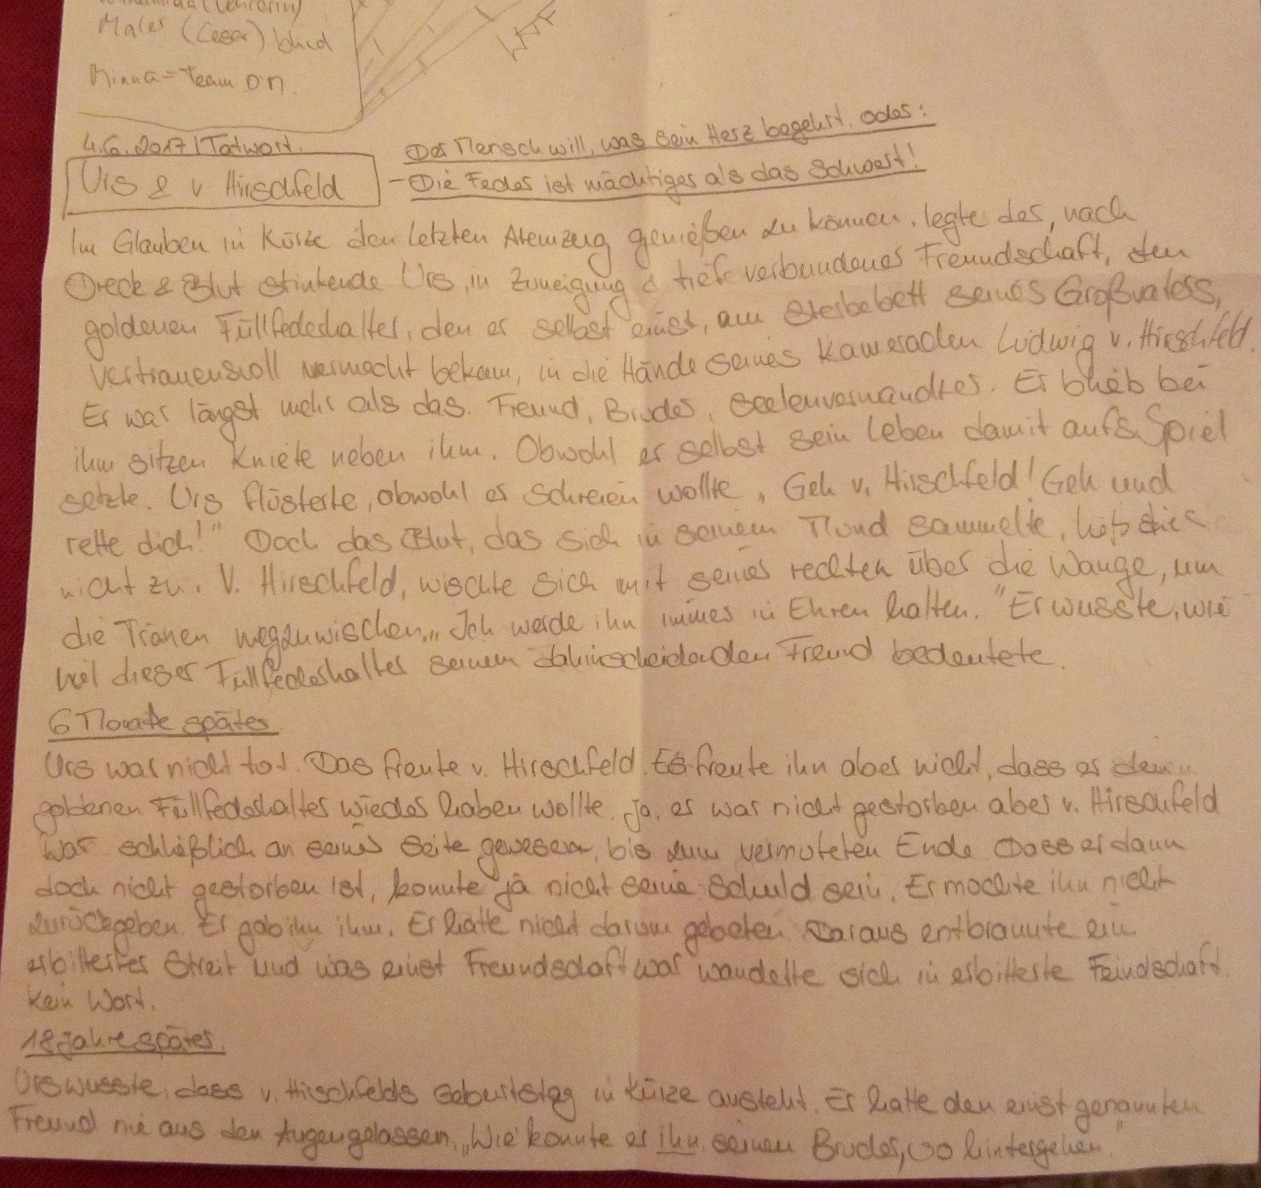 Maler (Cesar) blind
Minna = Team on.
4.6.2017 | Tatwort.
Urs & v Hirschfeld
Der Mensch will, was sein Herz begehrt. oder:
- Die Feder ist mächtiger als das Schwert!
Im Glauben in Kürze den letzten Atemzug genießen zu können, legte der, nach
Dreck & Blut stinkende Urs, in Zuneigung & tief verbundener Freundschaft, den
goldenen Füllfederhalter, den er selbst einst, am Sterbebett seines Großvaters,
vertrauensvoll vermacht bekam, in die Hände seines Kameraden Ludwig v. Hirschfeld.
Er war längst mehr als das. Freund, Bruder, Seelenverwandter. Er blieb bei
ihm sitzen. Kniete neben ihm. Obwohl er selbst sein Leben damit aufs Spiel
setzte. Urs flüsterte, obwohl er schreien wollte „Geh v. Hirschfeld! Geh und
rette dich!" Doch das Blut, das sich in seinem Mund sammelte, ließ dies
nicht zu. V. Hirschfeld, wischte sich mit seiner rechten über die Wange, um
die Tränen wegzuwischen. „Ich werde ihn immer in Ehren halten." Er wusste, wie
viel dieser Füllfederhalter seinem dahinscheidenden Freund bedeutete.
6 Monate später
Urs war nicht tot. Das freute v. Hirschfeld. Es freute ihn aber nicht, dass er den
goldenen Füllfederhalter wieder haben wollte. Ja, er war nicht gestorben aber v. Hirschfeld
war schließlich an seiner Seite gewesen, bis zum vermuteten Ende. Dass er dann
doch nicht gestorben ist, konnte ja nicht seine Schuld sein. Er mochte ihn nicht
zurückgeben. Er gab ihn ihm. Er hatte nicht darum gebeten. Daraus entbrannte ein
erbitterter Streit und was einst Freundschaft war wandelte sich in erbitterte Feindschaft.
Kein Wort.
18 Jahre später.
Urs wusste, dass v. Hirschfelds Geburtstag in Kürze ansteht. Er hatte den einst genannten
Freund nie aus den Augen gelassen. „Wie konnte er ihn, seinen Bruder, so hintergehen."